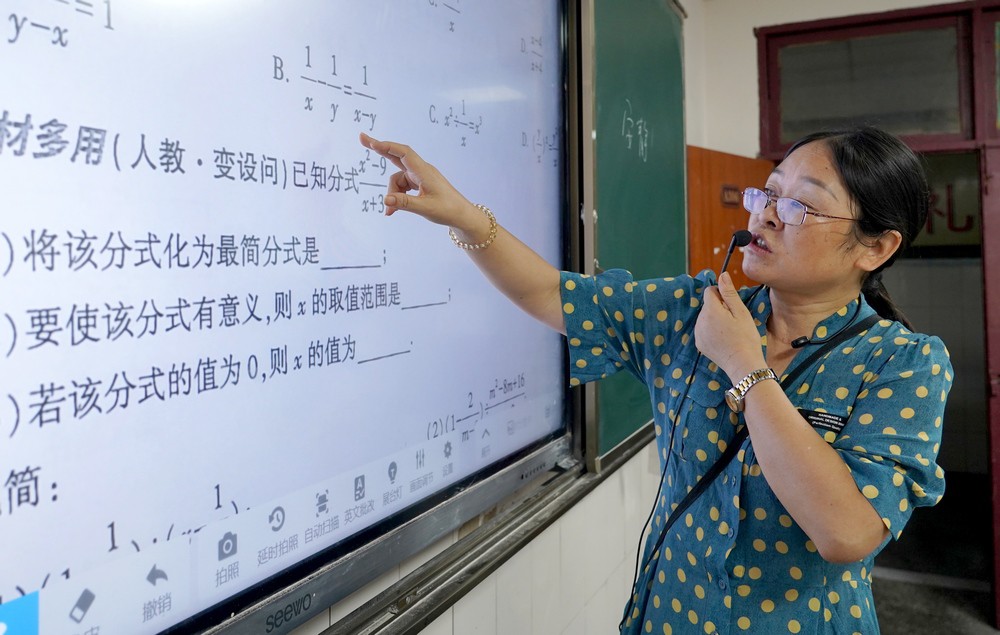 y-x =1
B. 1/x - 1/y = 1/x-y
C. x²÷1/x=x³
D.
D.
材多用(人教·变设问)已知分式x²-9/x+3
)将该分式化为最简分式是______;
)要使该分式有意义,则 x 的取值范围是______;
)若该分式的值为 0,则 x 的值为______.
(2)(1-2/m)÷m²-8m+16
简:
撤销
拍照
延时拍照
自动扫描
英文批改
展台灯
画面调节
设置
seewo
安静